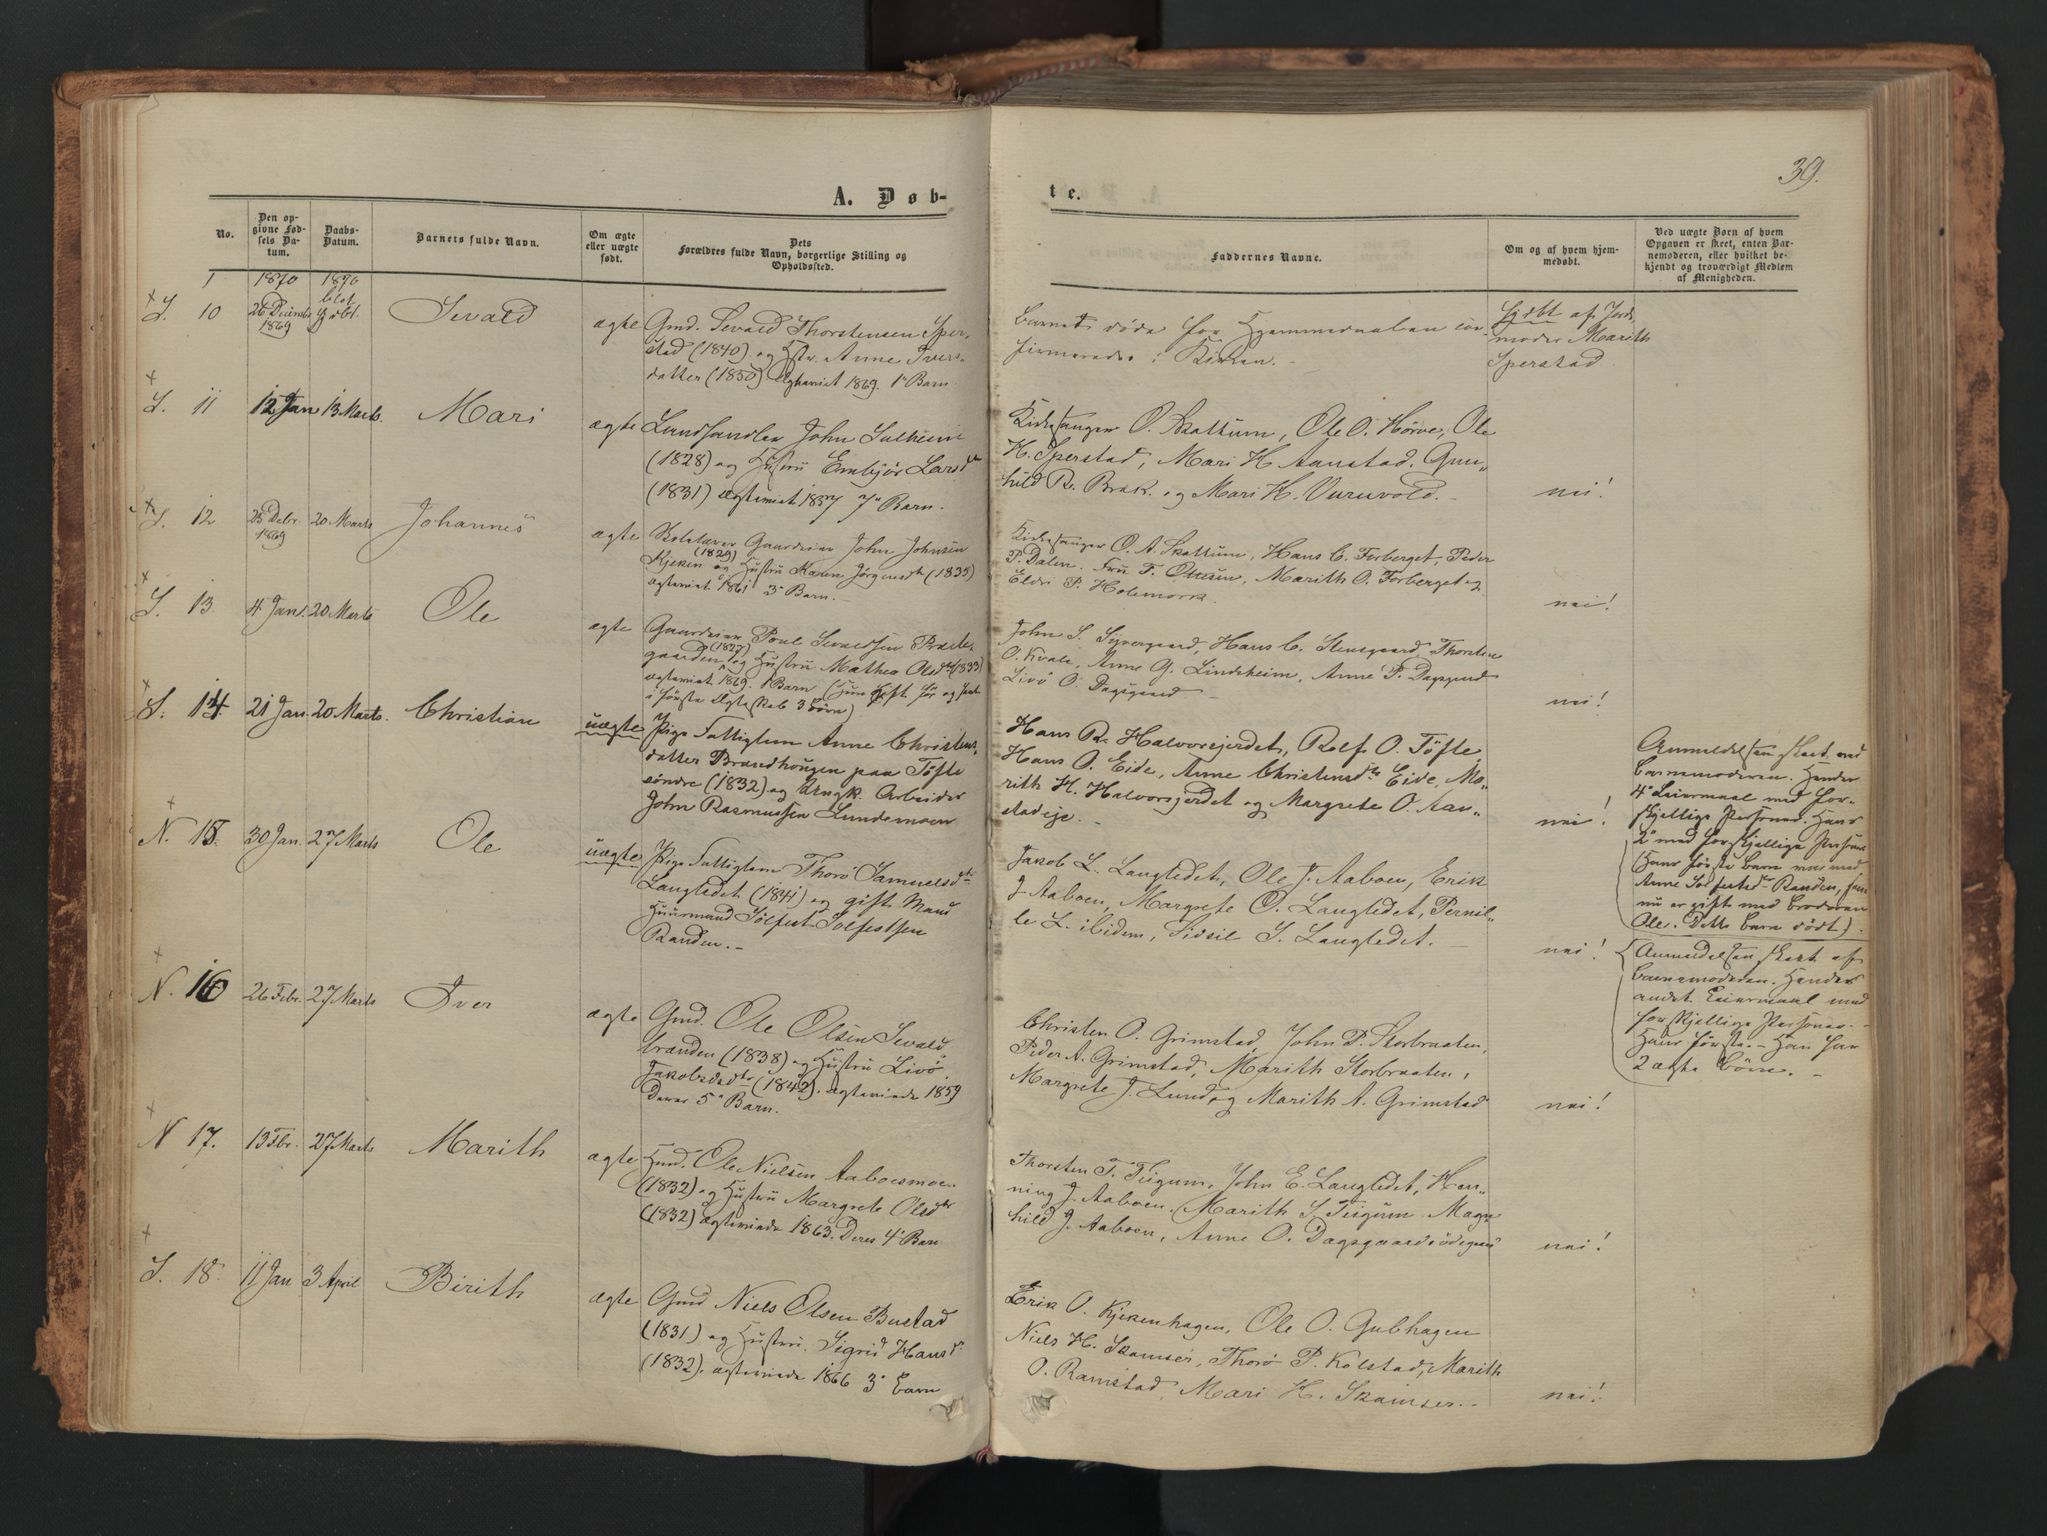 39.
A. Døb-
te.
No.
Den opgivne Fødsels Datum.
Daabs-Datum.
Barnets fulde Navn.
Om ægte eller uægte født.
Dets Forældres fulde Navn, borgerlige Stilling og Opholdssted.
Faddernes Navne.
Om og af hvem hjemmedøbt.
Ved uægte Børn af hvem Opgaven er skeet, enten Barnemoderen, eller hvilket bekjendt og troværdigt Medlem af Menigheden.
1 1870 1870
S. 10 26 Decembr 1869 Sevald
ægte Gmd. Sevald Thorstensen Sper-
stad (1840) og Hstr. Anne Ivers-
datter (1850) 1869. 1ste Barn
Barnets døde før
i Kirken.
hjdbt af Jord-
moder Marith
Sperstad
S. 11 12 Jan 13 Marts. Mari
ægte Landhandler John Solheim
(1828) og Hustru Embjør Larsdtr
(1831) ægteviet 1857 7de Barn.
Kirkesanger O. Skattum, Ole O. Hørve, Ole
H. Sperstad, Mari H. Aanstad, Gun-
hild R. Brak. og Mari H. Vuruvold. nei!
S. 12 25 Debr 1869 20 Marts Johannes
ægte Skolelærer Gaardeier John Johnsen
Kjeken (1829) og Hustru Karen Jørgensdtr (1835)
ægteviet 1861 3die Barn.
Kirkesanger O. A. Skattum, Hans C. Forberget, Peder
P. Dalen. Fru F. Olsen, Marith O. Forberget og
Eldri P. Holemork. nei!
S. 13 4 Jan. 20 Marts Ole
ægte Gaardeier Poul Sevaldsen Præste-
gaarden (1827) og Hustru Mathea Olsdtr (1833)
ægteviet 1869. 1 Barn (Hun gift før og
i første Ægteskab 3 Børn)
John S. Syvergaard, Hans C. Stensgaard, Thorsten
O. Kvale, Anne G. Lindsheim, Anne P. Dagsgard
Livø O. Dagsgaard nei!
S. 14 21 Jan. 20 Marts. Christian
uægte Pige Fattiglem Anne Christens-
datter Brandhougen paa Tøfte
søndre (1832) og Ungk. Arbeider
John Rasmussen Lundemoen
Hans R. Halvorsjerdet, Rolf O. Tøfte
Hans O. Eide, Anne Christensdtr Eide, Ma-
rith H. Halvorsjerdet og Margrete O. Aan-
stadeje. nei!
Anmeldelsen skeet ved
Barnemoderen. Hendes
4de Leiermaal med for-
skjellige Personer. Hans
2det med forskjellige Personer
(Hans første Barn var med
Anne Solfestdtr Randen, som
nu er gift med Broderen
Ole. Dette Barn dødt)
N. 15. 30 Jan. 27 Marts Ole
uægte Pige Fattiglem Thorø Samuelsdtr
Langledet (1841) og gift Mand
Huusmand Sølfest Solfestsen
Randen.
Jakob L. Langledet, Ole J. Aaboen, Erik
J. Aaboen, Margrete O. Langledet, Pernil-
le L. ibidem, Sidsil S. Langledet. nei!
Anmeldelsen skeet af
Barnemoderen. Hendes
andet Leiermaal med
forskjellige Personer.
Hans første. Han har
2 ægte Børn.
N. 16 26 Febr. 27 Marts Iver
ægte Gmd. Ole Olsen Sevald-
branden (1838) og Hustru Livø
Jakobsdatr (1842). ægteviede 1859
Deres 5te Barn.
Christen O. Grimstad, John P. Storbraaten,
Peder A. Grimstad, Marith Storbraaten,
Margrete J. Lund og Marith A. Grimstad nei!
N 17. 13 Fbr. 27 Marts Marith
ægte Hmd. Ole Nielsen Aaboesmoen
(1832) og Hustru Margrete Olsdtr
(1832) ægteviede 1863. Deres 4de Barn
Thorsten T. Teigum, John E. Langledet, Hen-
ning J. Aaboen, Marith S. Teigum Magn-
hild J. Aaboen, Anne O. Dagsgaardsødegaard nei!
S. 18. 11 Jan 3 April Birith
ægte Gmd Niels Olsen Bustad
(1831) og Hustru. Sigrid Hansdr
(1832). ægteviede 1866 3die Barn
Erik O. Kjekenhagen, Ole O. Gubhagen
Niels H. Skamsér, Thorø P. Kolstad, Marith
O. Ramstad, Mari H. Skamser. nei!